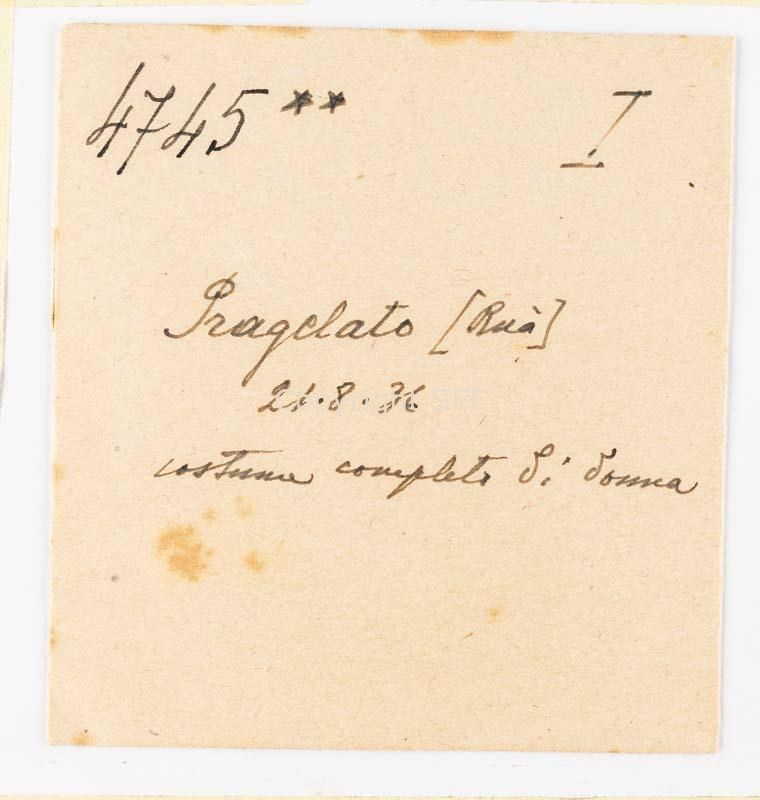 4745 ** I
Pragelato [Ruà]
21.8.36
costume completo di donna